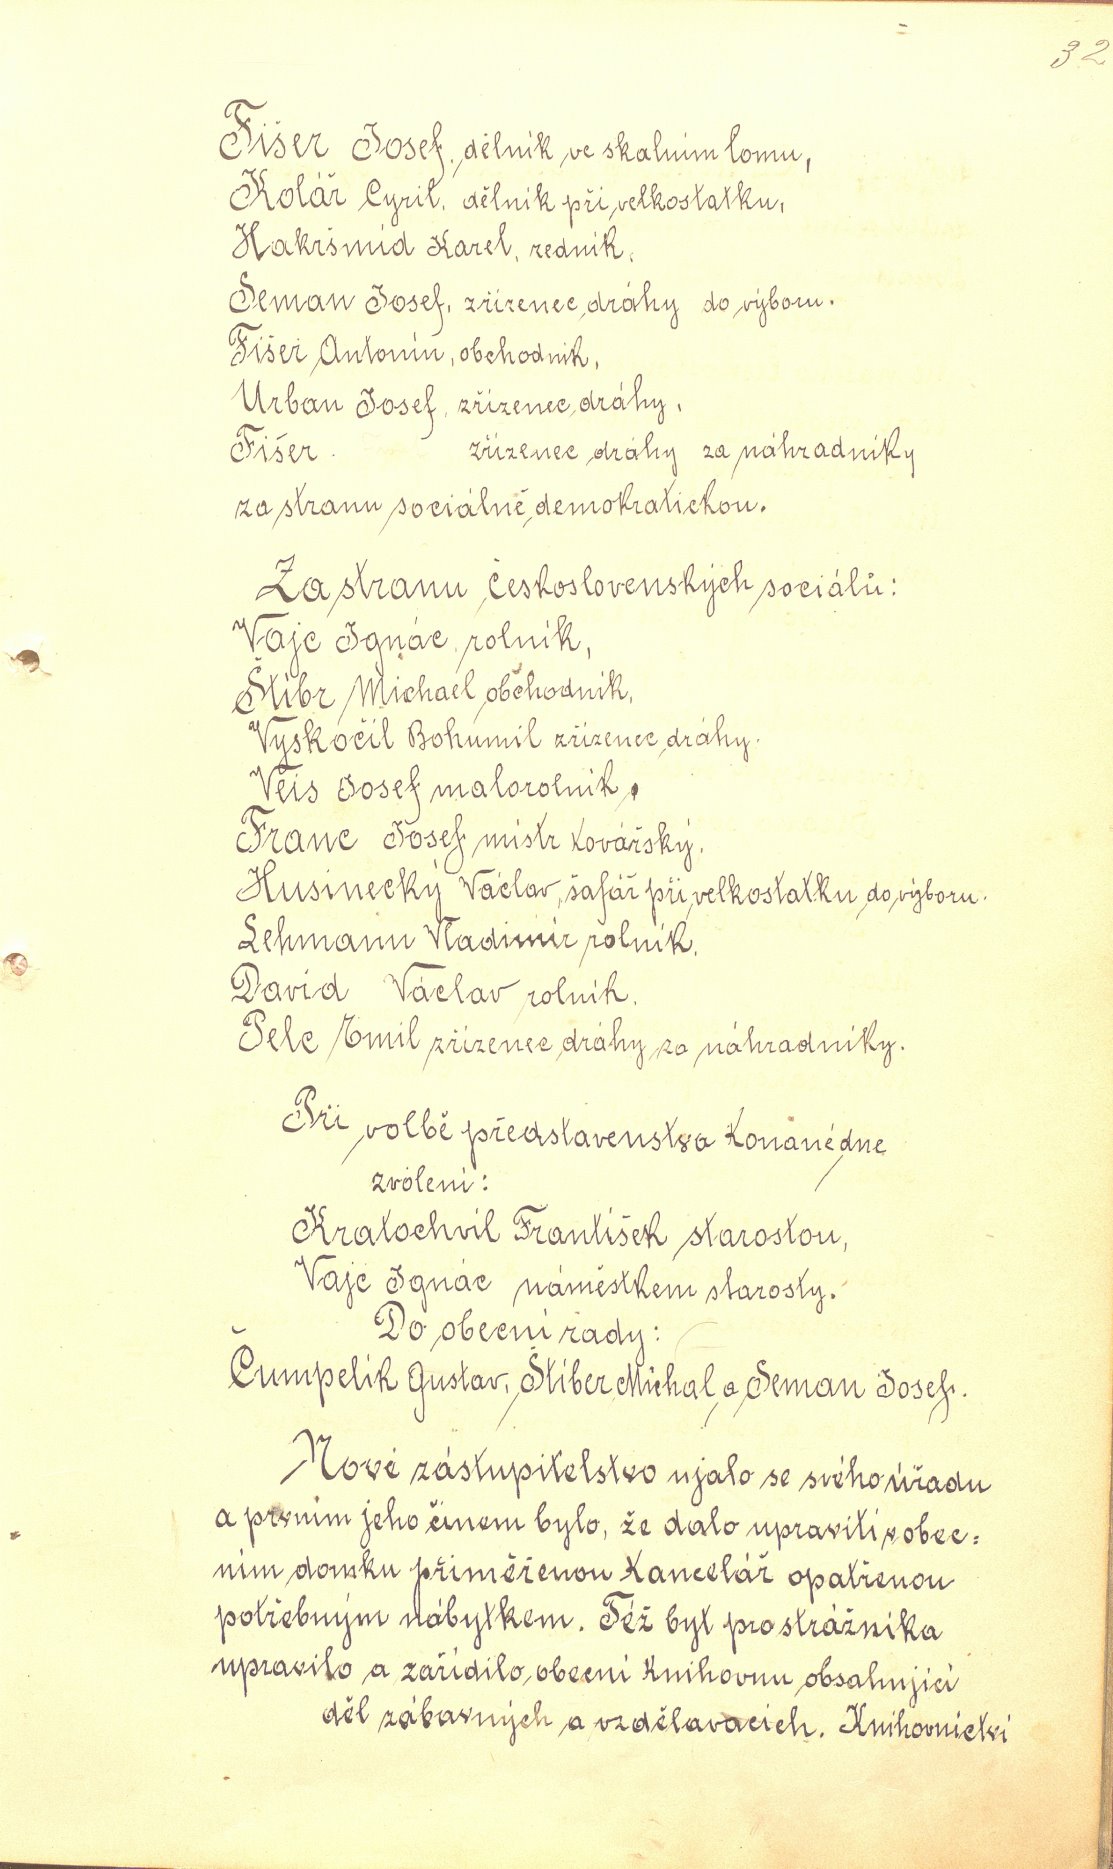 32
Fišer Josef, dělník ve skalním lomu,
Kolář Cyril, dělník při velkostatku,
Hakršmíd Karel, zedník,
Seman Josef, zřízenec dráhy do výboru.
Fišer Antonín, obchodník,
Urban Josef, zřízenec dráhy,
Fišer zřízenec dráhy za náhradníky
za stranu sociálně demokratickou.
Za stranu československých sociálů:
Vajc Ignác, rolník,
Štíbr Michael obchodník,
Vyskočil Bohumil zřízenec dráhy.
Veis Josef malorolník,
Franc Josef mistr kovářský,
Husinecký Václav, šafář při velkostatku do výboru.
Lehmann Vladimír rolník,
David Václav rolník,
Pelc Emil zřízenec dráhy za náhradníky.
Při volbě představenstva konané dne
zvoleni:
Kratochvíl František starostou,
Vajc Ignác náměstkem starosty.
Do obecní rady:
Čumpelík Gustav, Štíber Michal a Seman Josef.
Nové zástupitelstvo ujalo se svého úřadu
a prvním jeho činem bylo, že dalo upraviti v obec=
ním domku přiměřenou kancelář opatřenou
potřebným nábytkem. Též byt pro strážníka
upravilo a zařídilo obecní knihovnu obsahující
děl zábavných a vzdělavacích. Knihovnictví